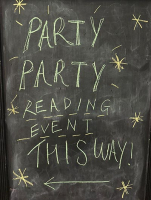 PARTY
PARTY
READING
EVENT
THIS WAY!